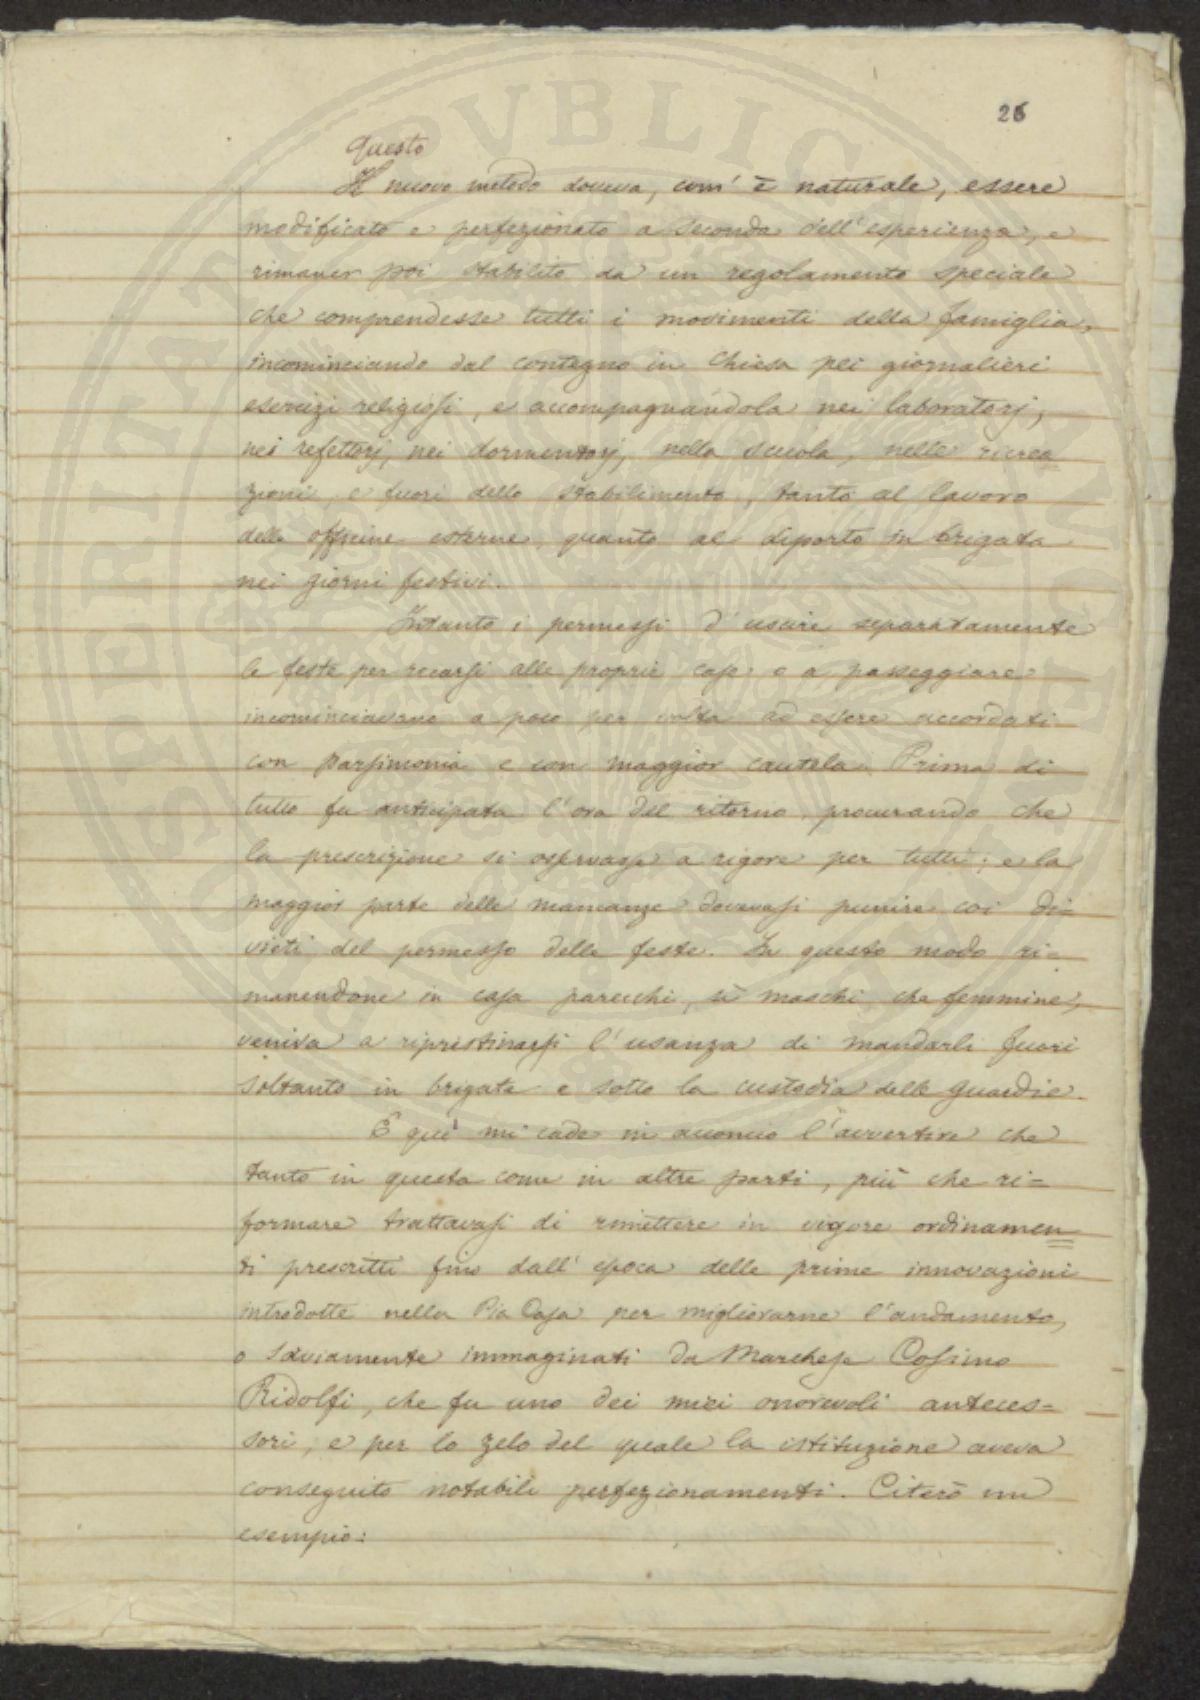 26
Questo
Il nuovo metodo doveva, com' è naturale, essere
modificato e perfezionato a seconda dell'esperienza, e
rimaner poi stabilito da un regolamento speciale
che comprendesse tutti i movimenti della famiglia,
incominciando dal contegno in Chiesa pei giornalieri
esercizi religiosi, e accompagnandola nei laboratorj,
nei refettorj, nei dormentorj, nella scuola, nelle ricrea
zioni, e fuori dello stabilimento, tanto al lavoro
delle officine esterne, quanto al diporto in brigata
nei giorni festivi.
Intanto i permessi d'uscire separatamente
le feste per recarsi alle proprie case e a passeggiare
incominciavano a poco per volta ad essere accordati
con parsimonia e con maggior cautela. Prima di
tutto fu anticipata l'ora del ritorno, procurando che
la prescrizione si osservasse a rigore per tutti; e la
maggior parte delle mancanze dovevasi punire coi di=
vieti del permesso delle feste. In questo modo ri=
manendone in casa parecchi, sì maschi che femmine,
veniva a ripristinarsi l'usanza di mandarli fuori
soltanto in brigata e sotto la custodia delle guardie.
E quì mi cade in acconcio l'avvertire che
tanto in questa come in altre parti, più che ri=
formare trattavasi di rimettere in vigore ordinamen
ti prescritti fino dall'epoca delle prime innovazioni
introdotte nella Pia Casa per migliorarne l'andamento,
o saviamente immaginati da Marchese Cosimo
Ridolfi, che fu uno dei miei onorevoli anteces=
sori, e per lo zelo del quale la istituzione aveva
conseguito notabili perfezionamenti. Citerò un
esempio:
SPVBLICA